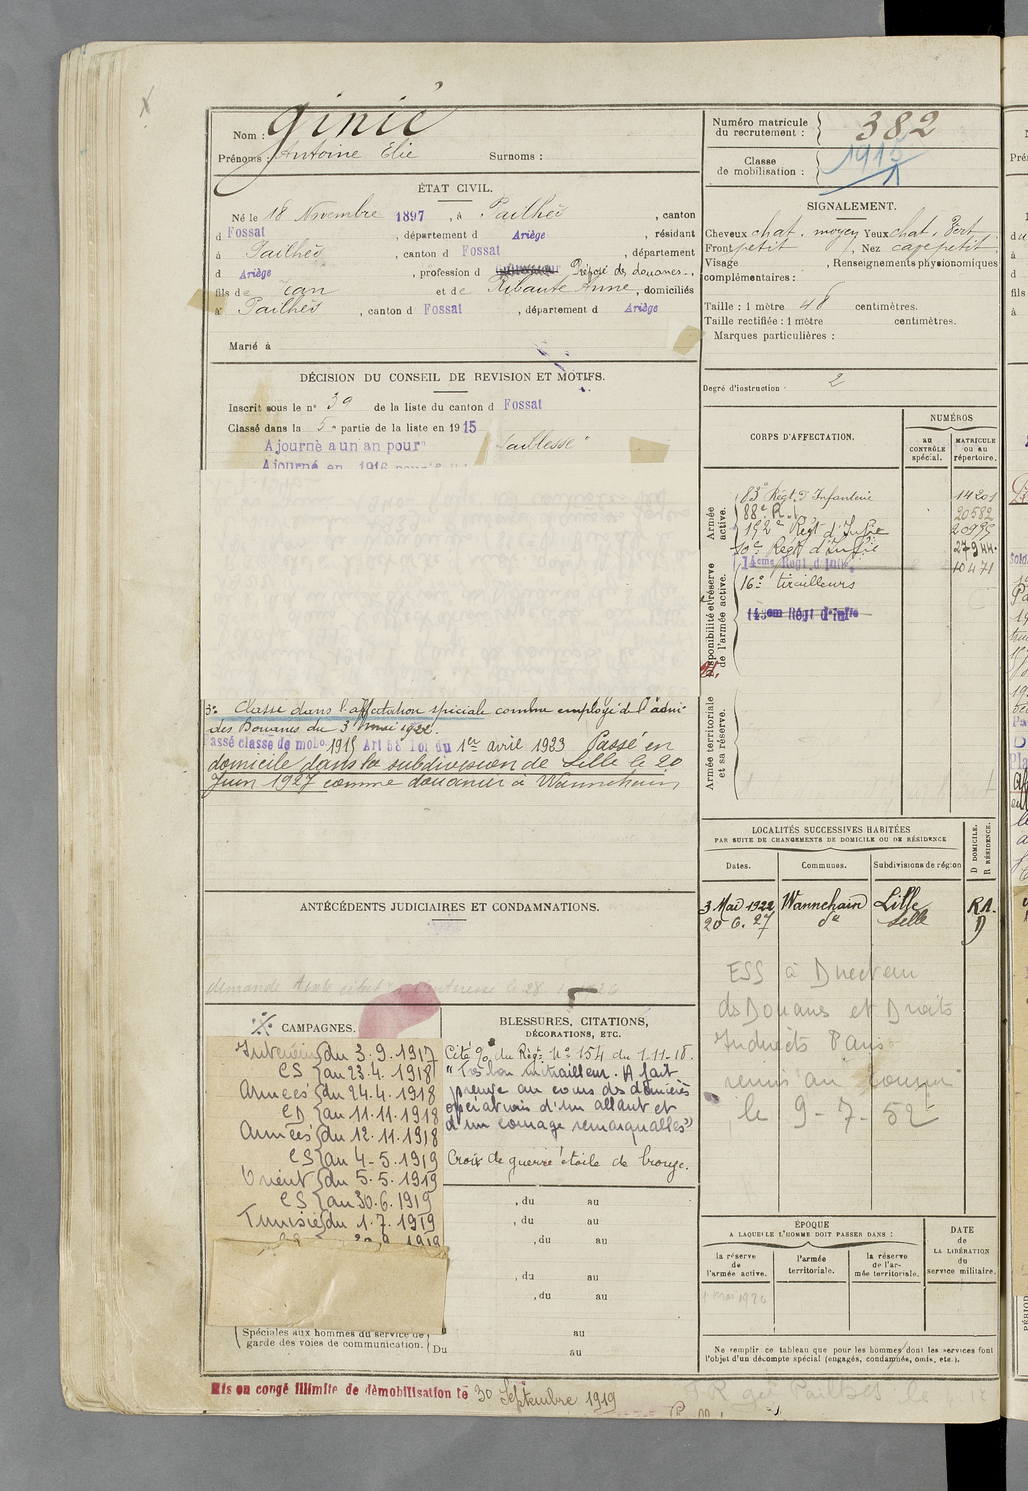 Nom : Ginié
Prénoms : Antoine Elie Surnoms :
Numéro matricule du recrutement : 382
Classe de mobilisation : 1915
ÉTAT CIVIL.
Né le 18 Novembre 1897, à Pailhès, canton
d Fossat, département d Ariège, résidant
à Pailhès, canton d Fossat, département
d Ariège, profession d Préposé des douanes.,
fils de Jean et de Ribaute Anne, domiciliés
à Pailhès, canton d Fossat, département d Ariège
Marié à
SIGNALEMENT.
Cheveux chat. moyen Yeux chat. vert
Front petit, Nez cave petit
Visage, Renseignements physionomiques
complémentaires :
Taille : 1 mètre 48 centimètres.
Taille rectifiée : 1 mètre centimètres.
Marques particulières :
Degré d'instruction : 2
DÉCISION DU CONSEIL DE REVISION ET MOTIFS.
Inscrit sous le n° 39 de la liste du canton d Fossat
Classé dans la 5e partie de la liste en 1915
Ajourné a un an pour "faiblesse"
Ajourné en 1916 pour
3° Classé dans l'affectation spéciale comme employé de l'admi-
des Douanes du 3 mai 1922.
assé classe de mobo 1915 Art 58 loi du 1er avril 1923 Passé en
domicile dans la subdivision de Lille le 20
Juin 1927 comme douanier à Wannehain
CORPS D'AFFECTATION.
NUMÉROS
au CONTRÔLE spécial.
MATRICULE ou au répertoire.
Armée active.
83e Régt d'Infanterie 14201
88e R.I. 20582
152e Régt d'Infie 20999
10e Régt d'Infie 27944
14eme Régt d'Infie 10471
16e tirailleurs
Disponibilité et réserve de l'armée active.
143em Régt d'Infie
Armée territoriale et sa réserve.
LOCALITÉS SUCCESSIVES HABITÉES
PAR SUITE DE CHANGEMENTS DE DOMICILE OU DE RÉSIDENCE
Dates. Communes. Subdivisions de région D DOMICILE. R RÉSIDENCE.
3 Mai 1922 Wannehain Lille RA.
20.6.27 do Lille D
ESS à Directeur
des Douanes et Droits
Indirects Paris
remis au
le 9-7-52
ANTÉCÉDENTS JUDICIAIRES ET CONDAMNATIONS.
CAMPAGNES.
Intérieur du 3.9.1917
CS au 23.4.1918
Armées du 24.4.1918
CD au 11.11.1918
Armées du 12.11.1918
CS au 4-5.1919
Orient du 5.5.1919
CS au 30.6.1919
Tunisie du 1.7.1919
BLESSURES, CITATIONS,
DÉCORATIONS, ETC.
Cité à l'o/ du Régt N° 154 du 1-11-18.
"Très bon mitrailleur. A fait
preuve au cours des dernières
opérations d'un allant et
d'un courage remarquables"
Croix de guerre étoile de bronze.
, du au
, du au
, du au
, du au
, du au
au
au
Spéciales aux hommes du service de
garde des voies de communication. Du
ÉPOQUE
A LAQUELLE L'HOMME DOIT PASSER DANS :
la réserve de l'armée active.
l'armée territoriale.
la réserve de l'armée territoriale.
DATE de LA LIBÉRATION du service militaire.
Ne remplir ce tableau que pour les hommes dont les services font
l'objet d'un décompte spécial (engagés, condamnés, omis, etc.).
Mis en congé illimité de démobilisation le 30 Septembre 1919